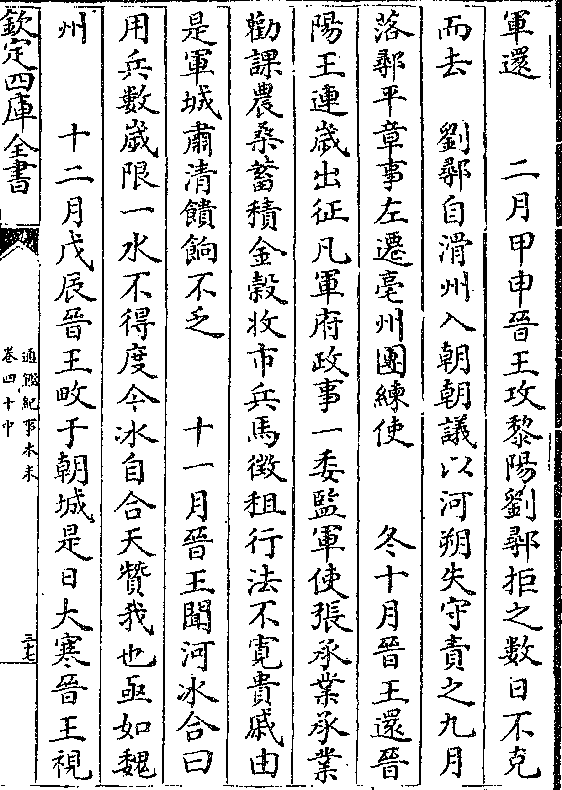 軍還　　二月甲申晉王攻黎陽劉鄩拒之數日不克
而去　　劉鄩自滑州入朝朝議以河朔失守責之九月
落鄩平章事左遷亳州團練使　　冬十月晉王還晉
陽王連歲出征凡軍府政事一委監軍使張承業承業
勸課農桑蓄積金穀收市兵馬徵租行法不寛貴戚由
是軍城肅清饋餉不乏　　十一月晉王聞河冰合曰
用兵數歲限一水不得度今冰自合天贊我也亟如魏
州　　十二月戊辰晉王畋于朝城是日大寒晉王視
欽定四庫全書
通鑑紀事本末
卷四十中
三七